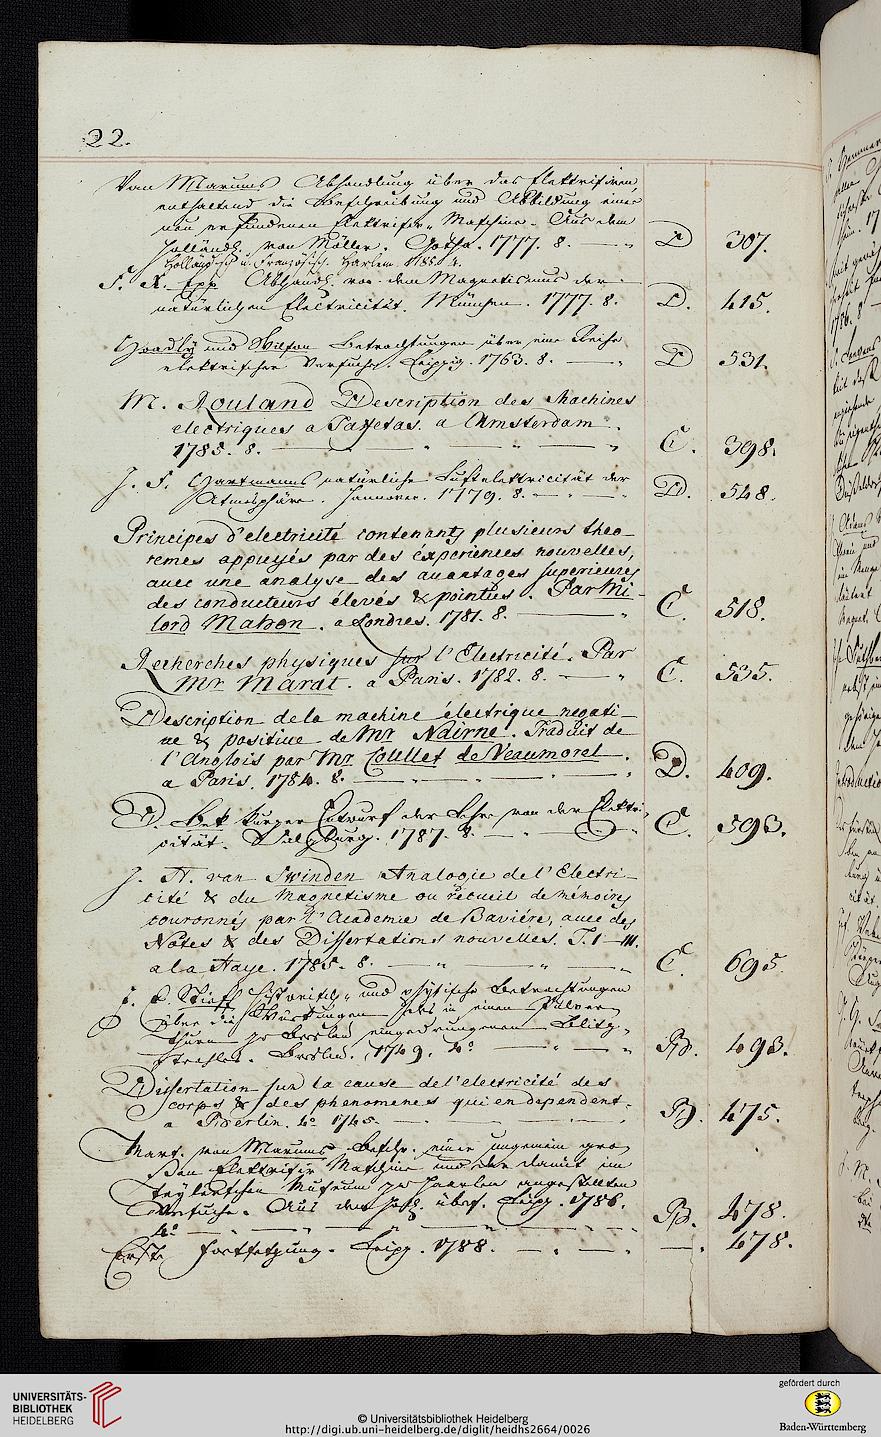 22.
Van Marums Abhandlung über das Elektrisiren,
enthaltend die Beschreibung und Abbildung einer
neu erfundenen Elektrisir-Maschine. Aus dem
Holländ. von Möller. Gotha. 1777. 8. — D 307.
Holländisch u. französisch. Harlem 1785. 4.
F. X. Epp Abhandl. von dem Magnetismus der
natürlichen Electricität. München. 1777. 8. D. 415.
Hoadly und Wilson Betrachtungen über eine Reihe
elektrischer Versuche. Leipzig. 1763. 8. — D 531.
M. Rouland Description des Machines
electriques a Taffetas. a Amsterdam.
1785. 8. — C. 398.
J. F. Hartmanns natürliche Luftelektricität der
Atmosphäre. Hannover. 1779. 8. — D. 548.
Principes d'electricité contenants plusieurs theo-
remes appuyés par des experiences nouvelles,
avec une analyse des avantages superieures
des conducteurs élevés & pointues. Par Mi-
lord Mahon. a Londres. 1781. 8. — C. 518.
Recherches physiques sur l'Electricité. Par
Mr Marat. a Paris. 1782. 8. — C. 535.
Description de la machine électrique negati-
ve & positive de Mr Nairne. Traduit de
l'Anglois par Mr Caullet de Veaumorel.
a Paris. 1784. 8. — D. 409.
D. Bek kurzer Entwurf der Lehre von der Elektri-
cität. Salzburg. 1787. 8. — C. 593.
J. H. van Swinden Analogie de l'Electri-
cité & du Magnetisme ou recueil de mémoires
couronnés par l'Academie de Baviére, avec des
Notes & des Dissertations nouvelles. T. I—III.
a la Haye. 1785. 8. — C. 695.
Historisch- und physische Betrachtungen
über die Würkungen in einen Pulver-
thurn zu Breslau eingedrungenen Blitz-
strahles. Breslau. 1749. 4º — B. 493.
Dissertation sur la cause de l'electricité des
corps & des phenomenes qui en dependent.
a Berlin. 4º 1745. — B. 475.
Mart. van Marums Beschr. einer ungemein gros-
sen Elektrisir Maschine und der damit im
Teylerischen Museum zu Haarlem angestellten
Versuche. Aus dem Holl. übers. Leipz. 1786.
4º — B. 478.
Erste Fortsetzung. Leipz. 1788. — 478.
UNIVERSITÄTS-
BIBLIOTHEK
HEIDELBERG
© Universitätsbibliothek Heidelberg
http://digi.ub.uni-heidelberg.de/diglit/heidhs2664/0026
gefördert durch
Baden-Württemberg